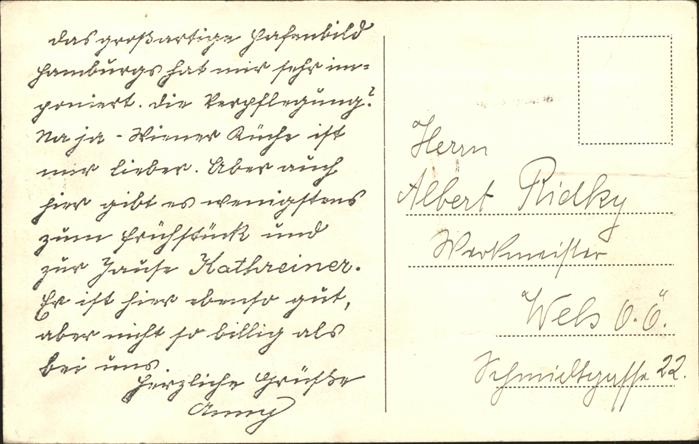 Das großartige Hafenbild
Hamburgs hat mir sehr im-
poniert. Die Verpflegung?
Na ja - Wiener Küche ist
mir lieber. Aber auch
hier gibt es wenigstens
zum Frühstück und
zur Jause Kathreiner.
Er ist hier ebenso gut,
aber nicht so billig als
bei uns.
Herzliche Grüße
Anny
Herrn
Albert Ridky
Werkmeister
Wels O.Ö.
Schmidtgasse 22.